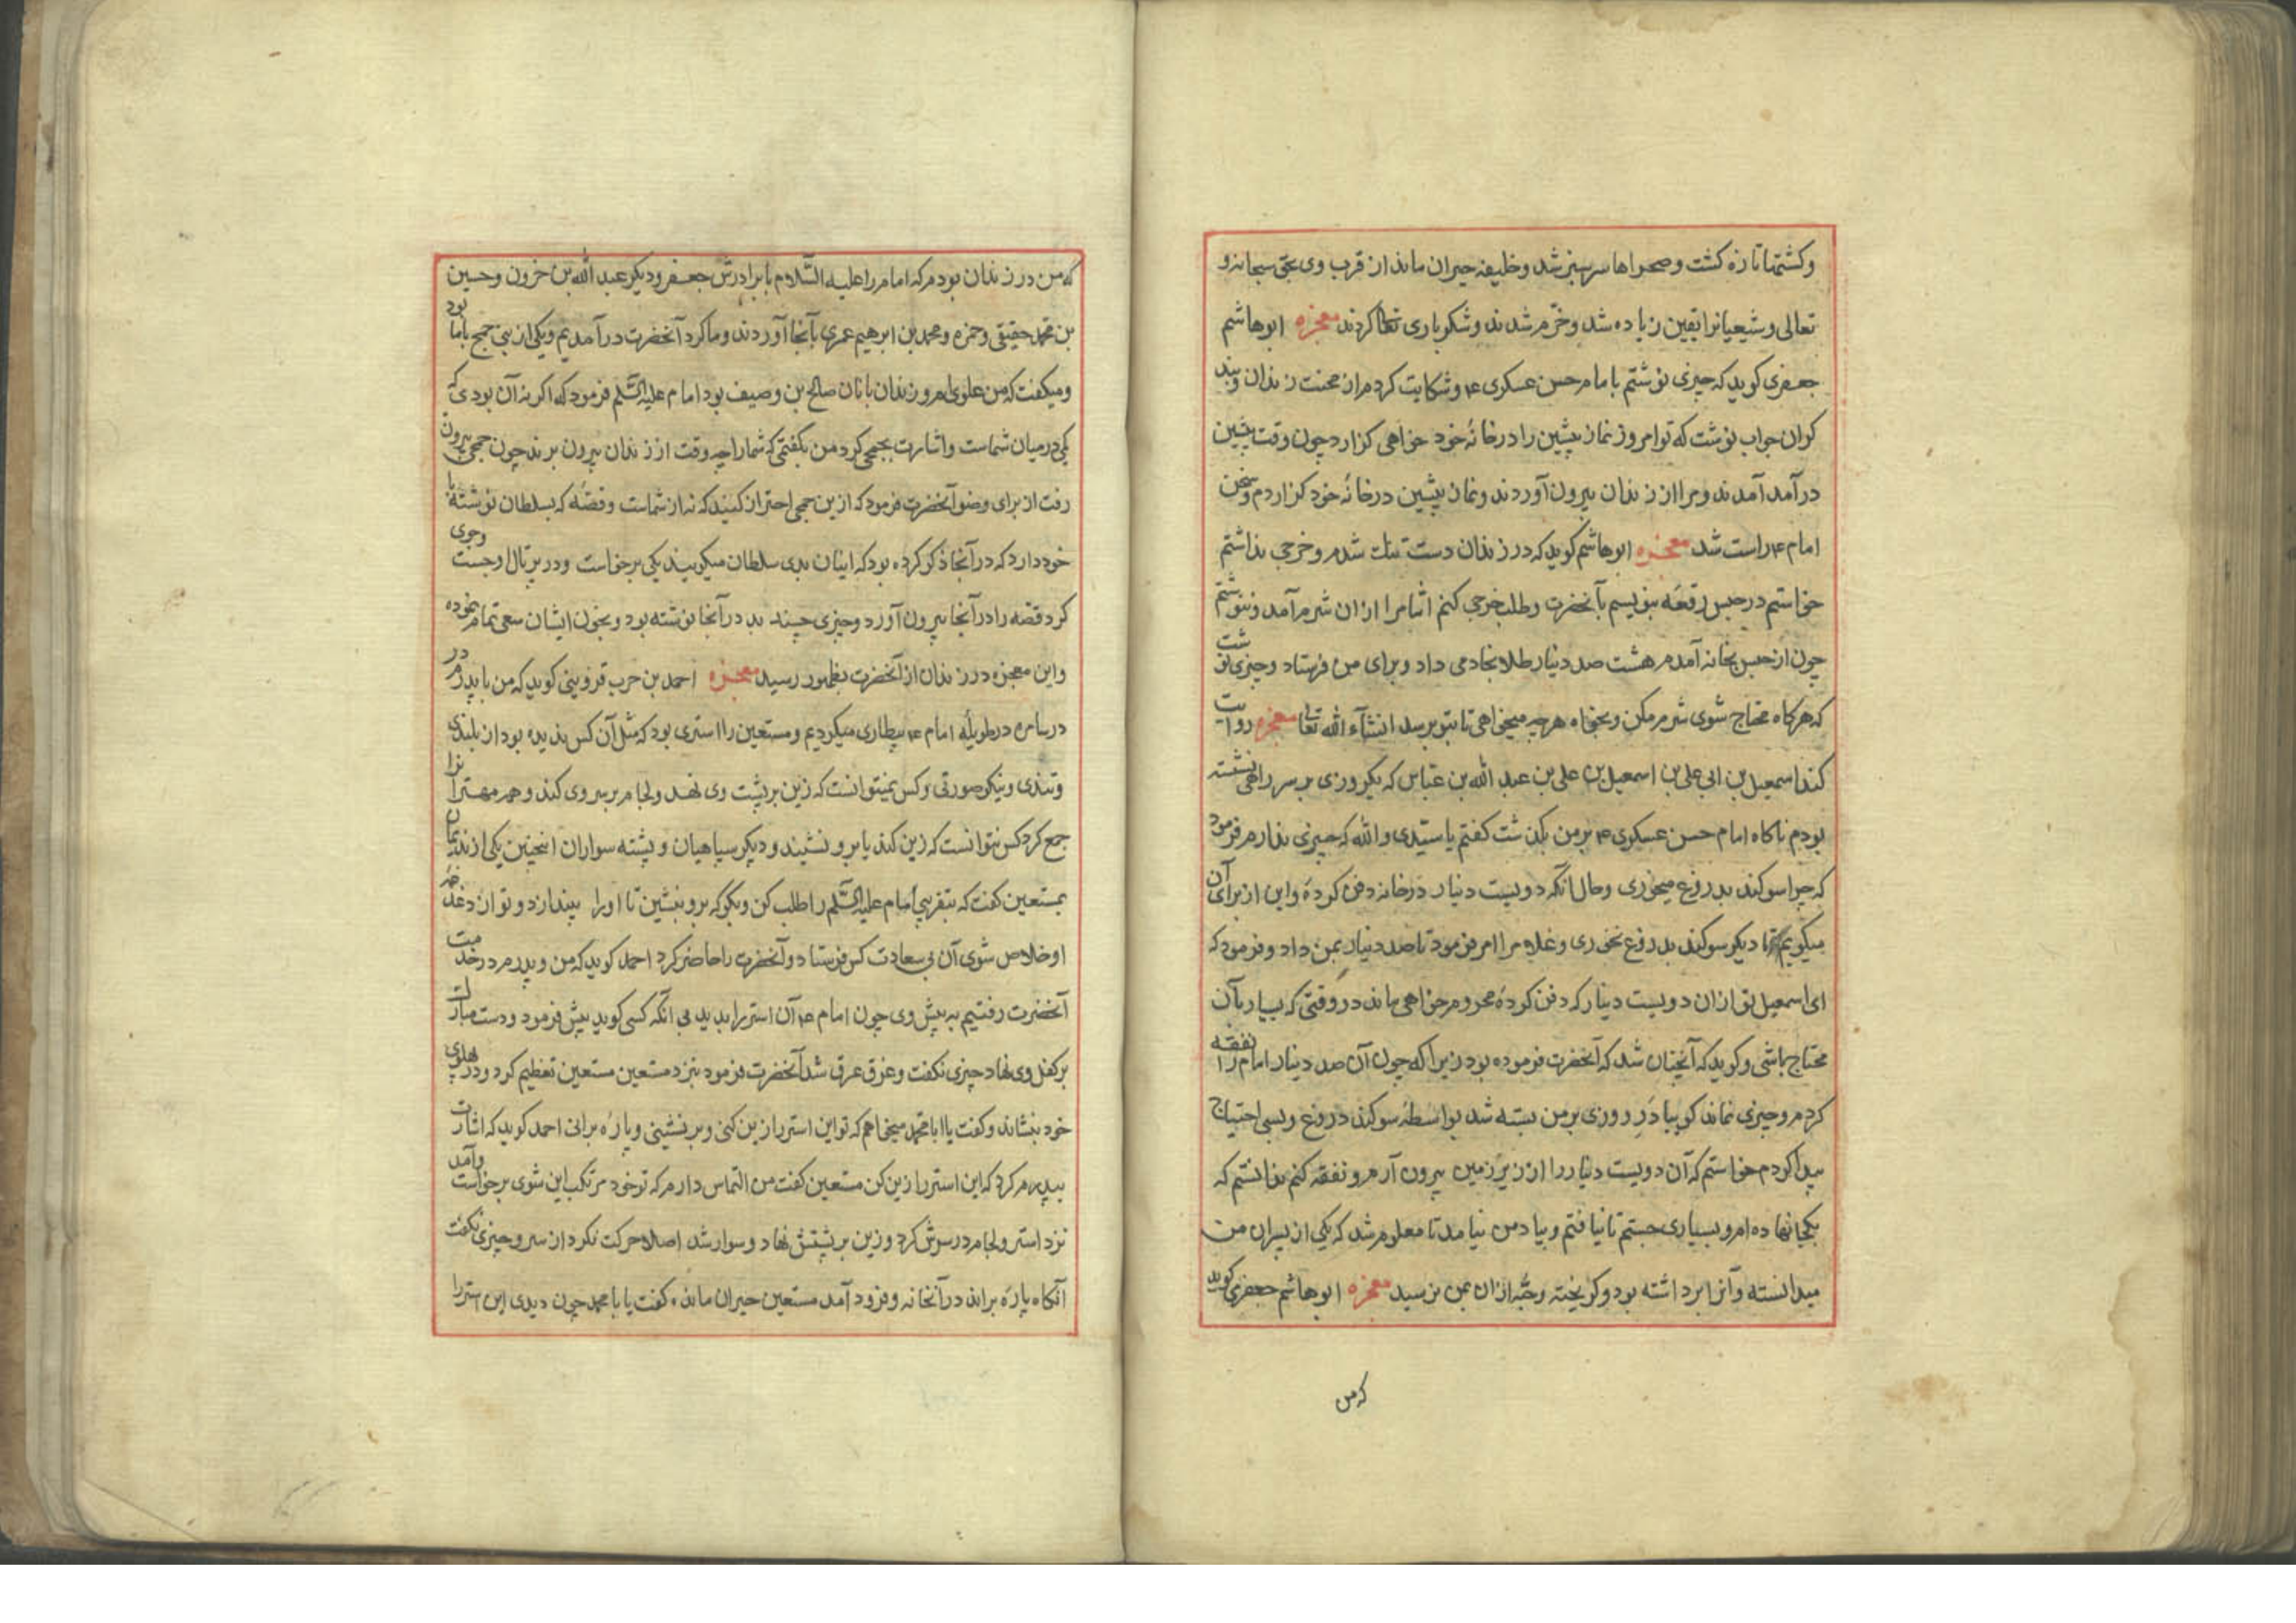 وکشتها تازه کشت و صحراها سرسبز شد و خلیفه حیران ماند از قرب وی بحق سبحانه و
تعالی و شیعیانرا یقین زیاده شد و خرّم شدند و شکر باری تعالی کردند معجزه ابوهاشم
جعفری کوید که چیزی نوشتم بامام حسن عسکری ع و شکایت کردم از محنت زندان و بند
کران جواب نوشت که تو امروز نماز پیشین را در خانهٔ خود خواهی کزارد چون وقت پیشین
درآمد آمدند و مرا از زندان بیرون آوردند و نماز پیشین در خانهٔ خود کزاردم و سخن
امام ع راست شد معجزه ابوهاشم کوید که در زندان دست تنک شدم و خرجی نداشتم
خواستم در حبس رقعه بنویسم بآنحضرت و طلب خرجی کنم اما مرا ازان شرم آمد و ننوشتم
چون از حبس بخانه آمدم هشت صد دینار طلا بخادمی داد و برای من فرستاد و چیزی نوشت
که هرکاه محتاج شوی شرم مکن و بخواه هرچه میخواهی تا بتو برسد انشآء الله تعالی معجزه روایت
کند اسمعیل بن ابی علی بن اسمعیل بن علی بن عبد الله بن عباس که یکروزی بر سر راهی نشسته
بودم ناکاه امام حسن عسکری ع بر من بکذشت کفتم یا سیّدی والله که چیزی ندارم فرمود
که چرا سوکند بدروغ میخوری و حال آنکه دویست دینار در خانه دفن کردهٔ و این از برای آن
میکویم تا دیکر سوکند بدروغ نخوری و غلام را امر فرمود تا صد دینار بمن داد و فرمود که
ای اسمعیل تو ازان دویست دینار که دفن کردهٔ محروم خواهی ماند در وقتی که بسیار بآن
محتاج باشی و کوید که آنچنان شد که آنحضرت فرموده بود زیرا که چون آن صد دینار امام را نفقه
کردم و چیزی نماند کوییا در روزی بر من بسته شد بواسطهٔ سوکند دروغ و بسی احتیاج
پیدا کردم خواستم که آن دویست دینار را از زیر زمین بیرون آرم و نفقه کنم ندانستم که
بکجا نهاده ام و بسیاری جستم تا نیافتم و بیاد من نیامد تا معلوم شد که یکی از پسران من
میدانسته و آنرا برداشته بود و کریخته و حبّه ازان بمن نرسید معجزه ابوهاشم جعفری کوید
که من
که من در زندان بودم که امام را علیه السّلام با برادرش جعفر و دیکر عبد الله بن خزون و حسین
بن محمد حقیقی و حمزه و محمد بن ابرهیم عمری بآنجا آوردند و ما کرد آنحضرت درآمدیم و یکی از بنی جمح با ما بود
و میکفت که من علوی ام و زندان بانان صالح بن وصیف بود امام علیه السّلم فرمود که اکر نه آن بودی که
یکی در میان شماست و اشارت بجمحی کرد من بکفتمی که شما را چه وقت از زندان بیرون برند چون جمحی بیرون
رفت از برای وضو آنحضرت فرمود که ازین جمحی احتراز کنید که نه از شماست و قصّه که بسلطان نوشته با
خود دارد که در آنجا ذکر کرده بود که اینان بدی سلطان میکویند یکی برخواست و در پرتال او جست و جوی
کرد قصّه را در آنجا بیرون آورد و چیزی چند بد در آنجا نوشته بود و بخون ایشان سعی تمام نموده
و این معجزه در زندان از آنحضرت بظهور رسید معجزه احمد بن حرب قزوینی کوید که من با پدرم در
در سامره در طویلهٔ امام ع بیطاری میکردیم و مستعین را استری بود که مثل آن کس ندیده بود از بلندی
و تندی و نیکو صورتی و کس نمیتوانست که زین بر پشت وی نهد و لجام بر سر وی کند و هر مهترانرا
جمع کرد کس نتوانست که زین کند یا برو نشیند و دیکر سپاهیان و پشته سواران انچنین یکی از ندیمان
بمستعین کفت که بتقریبی امام علیه السّلم را طلب کن و بکو که برو بنشین تا او را بیندازد و تو از دغدغهٔ
او خلاص شوی آن بی سعادت کس فرستاد و آنحضرت را حاضر کرد احمد کوید که من و پدرم در خدمت
آنحضرت رفتیم به پیش وی چون امام ع آن استر را بدید بی آنکه کسی کوید پیش فرمود و دست مبارک
بر کفل وی نهاد چیزی نکفت و غرق عرق شد آنحضرت فرمود بنزد مستعین مستعین تعظیم کرد و در پهلوی
خود بنشاند و کفت یا ابا محمد میخواهم که تو این استر را زین کنی و بر نشینی و پارهٔ برانی احمد کوید که اشارت
بپدرم کرد که این استر را زین کن مستعین کفت من التماس دارم که تو خود مرتکب این شوی برخواست و آمد
نزد استر و لجام در سرش کرد و زین بر پشتش نهاد و سوار شد اصلا حرکت نکرد از سر و چیزی نکفت
آنکاه پارهٔ براند در آنخانه و فرود آمد مستعین حیران مانده کفت یا با محمد چون دیدی این استر را